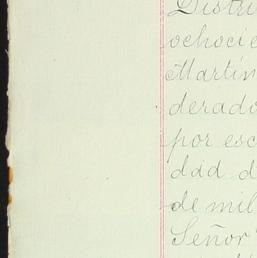 Distri
ochocie
Martín
derado
por esc
dad d
de mil
Señor